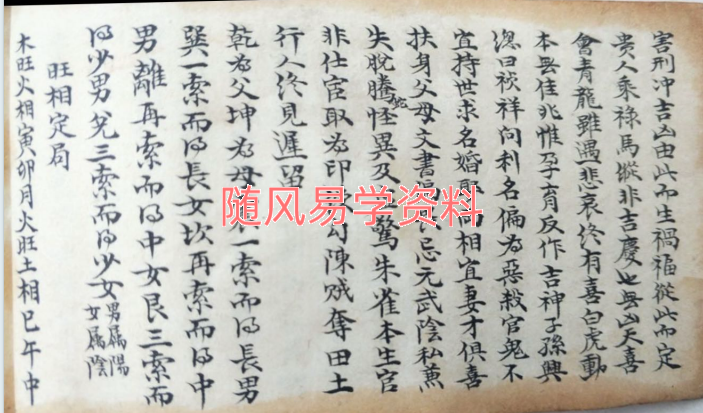 害刑冲吉凶由此而生禍福從此而定
貴人乘祿馬縱非吉慶也無凶天喜
會青龍雖遇悲哀終有喜白虎動
本無佳兆惟孕育反作吉神子孫興
忽曰祆祥问利名偏为惡殺官鬼不
宜持世求名婚而相宜妻才俱喜
扶身父母文書忌元武陰私兼
失脫騰蛇怪異及驚朱雀本生官
非仕宦取为印陳贼奪田土
行人终見遲留
乾为父坤为母一索而得長男
巽一索而得長女坎再索而得中
男離再索而得中女艮三索而
得少男兑三索而得少女男属陽女属陰
旺相定局
木旺火相寅卯月火旺土相巳午中
随风易学资料